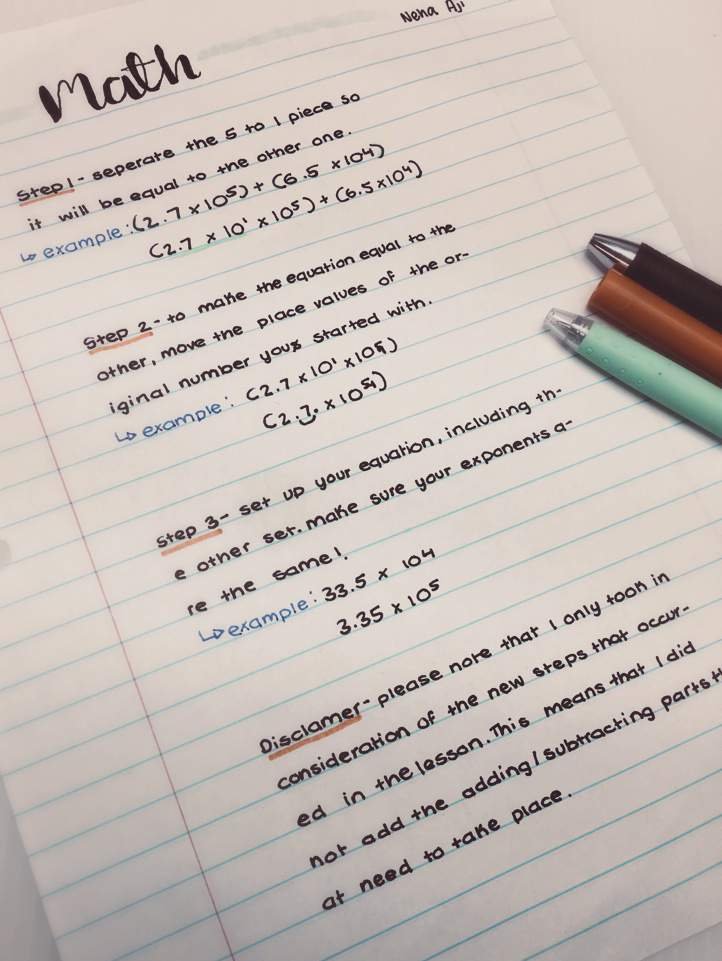 Neha Aji
Math
Step 1 - seperate the 5 to 1 piece so
it will be equal to the other one.
↳ example: (2.7 × 10⁵) + (6.5 × 10⁴)
(2.7 × 10¹ × 10⁵) + (6.5 × 10⁴)
Step 2 - to make the equation equal to the
other, move the place values of the or-
iginal number you started with.
↳ example: (2.7 × 10¹ × 10⁴)
(2.7. × 10⁴)
Step 3 - set up your equation, including th-
e other set. make sure your exponents a-
re the same!
↳ example: 33.5 × 10⁴
3.35 × 10⁵
Disclamer - please note that I only took in
consideration of the new steps that occur-
ed in the lesson. This means that I did
not add the adding/subtracting parts th
at need to take place.